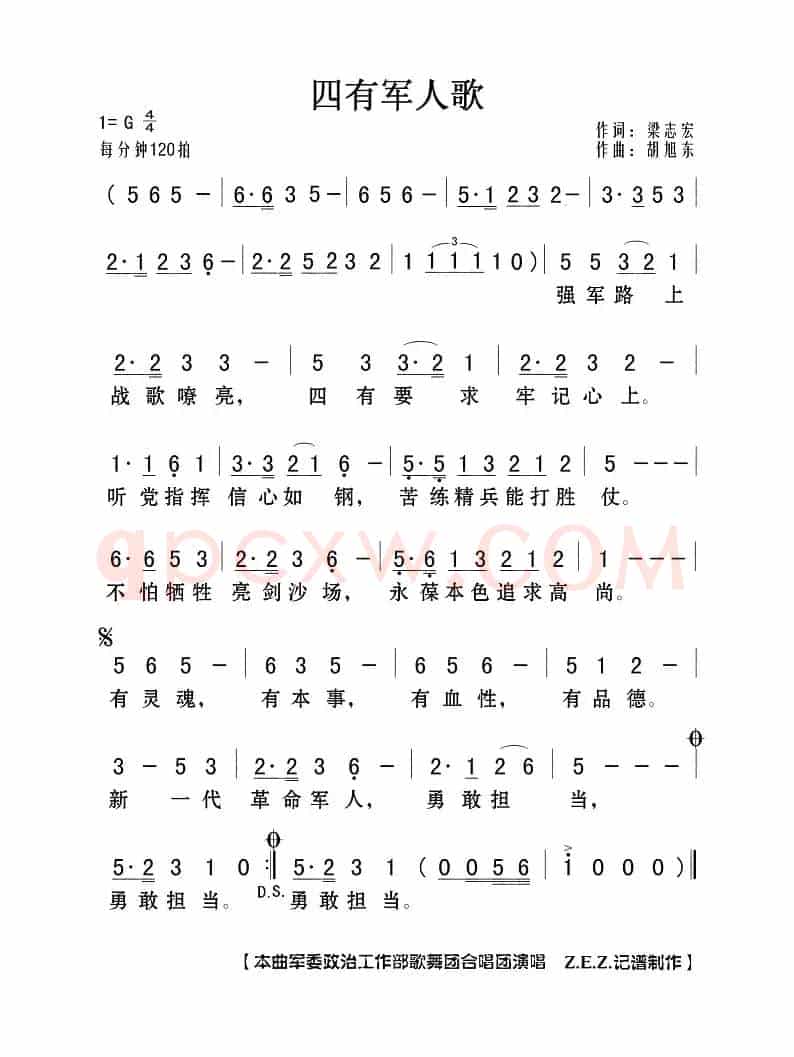 四有军人歌
1= G 4/4
作词：梁志宏
每分钟120拍
作曲：胡旭东
( 5 6 5 － | 6· 6 3 5 － | 6 5 6 － | 5· 1 2 3 2 － | 3· 3 5 3 |
2· 1 2 3 6 － | 2· 2 5 2 3 2 | 1 1 1 1 1 0 ) | 5 5 3 2 1 |
3
强 军 路 上
2· 2 3 3 － | 5 3 3· 2 1 | 2· 2 3 2 － |
战 歌 嘹 亮， 四 有 要 求 牢 记 心 上。
1· 1 6 1 | 3· 3 2 1 6 － | 5· 5 1 3 2 1 2 | 5 － － － |
听 党 指 挥 信 心 如 钢， 苦 练 精 兵 能 打 胜 仗。
qpcxw.com
6· 6 5 5 3 | 2· 2 3 6 － | 5· 6 1 3 2 1 2 | 1 － － － |
不 怕 牺 牲 亮 剑 沙 场， 永 葆 本 色 追 求 高 尚。
5 6 5 － | 6 3 5 － | 6 5 6 － | 5 1 2 － |
有 灵 魂， 有 本 事， 有 血 性， 有 品 德。
3 － 5 3 | 2· 2 3 6 － | 2· 1 2 6 | 5 － － － |
新 一 代 革 命 军 人， 勇 敢 担 当，
5· 2 3 1 0 :‖ 5· 2 3 1 ( 0 0 5 6 | 1 0 0 0 ) ‖
勇 敢 担 当。 D.S. 勇 敢 担 当。
【本曲军委政治工作部歌舞团合唱团演唱 Z.E.Z.记谱制作】